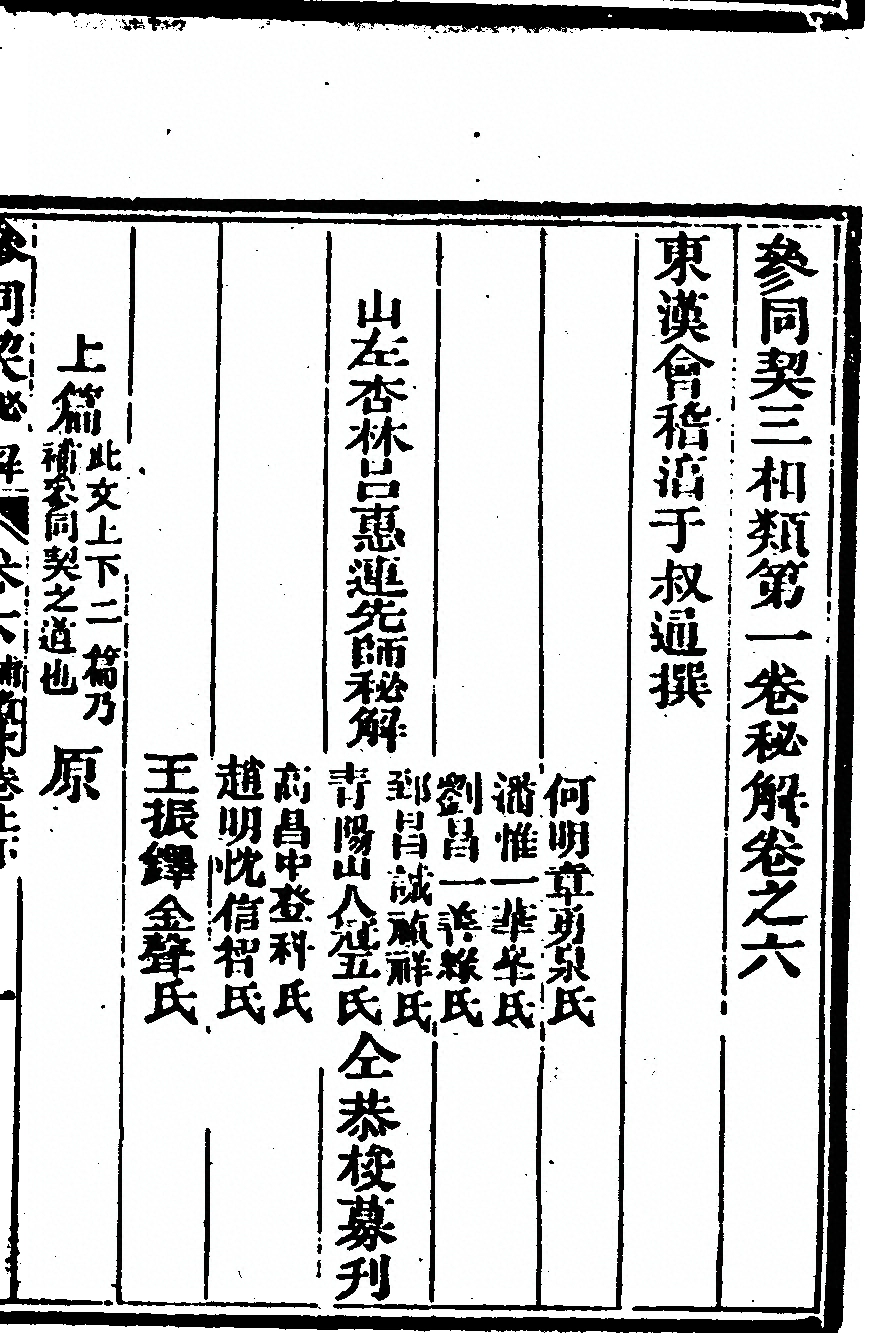 參同契三相類第一卷秘解卷之六
東漢會稽湻于叔通撰
何明章勇泉氏
潘惟一華峯氏
劉昌一善緣氏
鄧昌誠禎祥氏
山左杏林呂惠連先師秘解
青陽山人冠五氏
仝恭梭募刋
高昌中登科氏
趙明忱信智氏
王振鐸金聲氏
上篇
此文上下二篇乃
補參同契之道也
原
參同契秘解